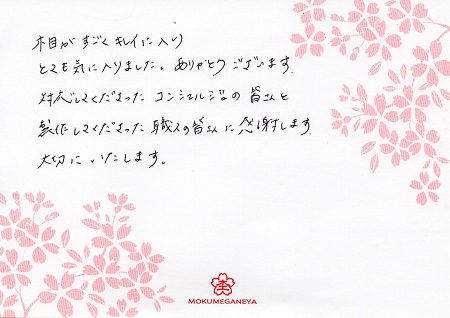 木目がすごくキレイに入り
とても気に入りました。ありがとうございます。
対応してくださったコンシェルジュの皆さんと
製作してくださった職人の皆さんに感謝します。
大切にいたします。
MOKUMEGANEYA